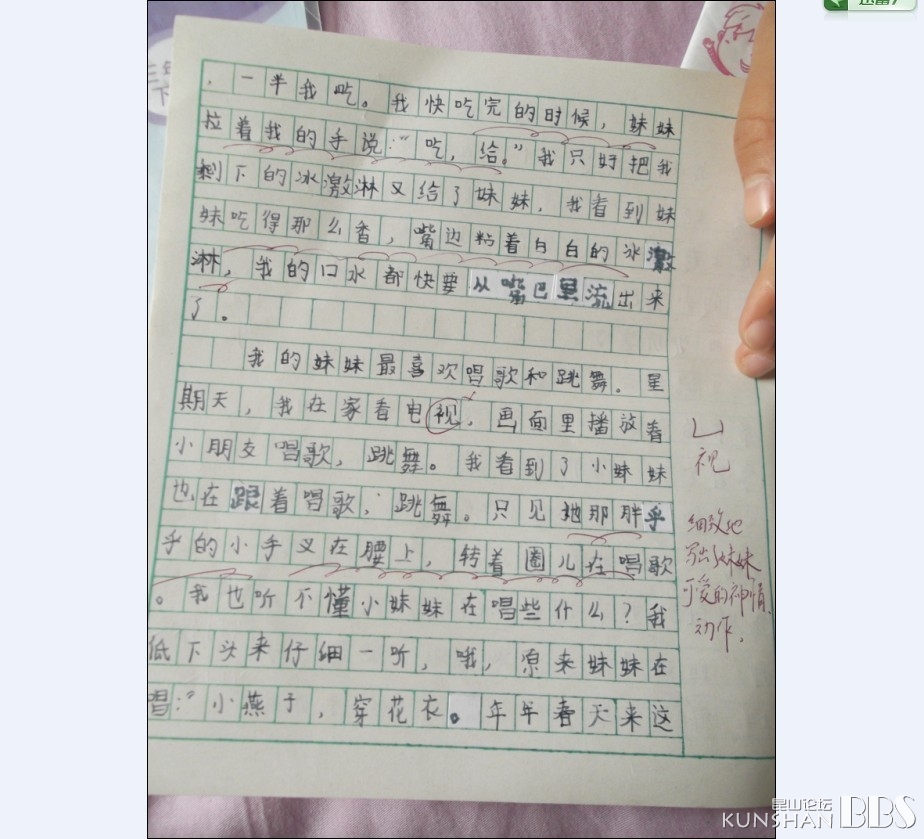 ，一半我吃。我快吃完的时候，妹妹
拉着我的手说："吃，给。"我只好把我
剩下的冰激淋又给了妹妹，我看到妹
妹吃得那么香，嘴边粘着白白的冰激
淋，我的口水都快要从嘴巴里流出来
了。
我的妹妹最喜欢唱歌和跳舞。星
期天，我在家看电视，画面里播放着
小朋友唱歌，跳舞。我看到了小妹妹
也在跟着唱歌，跳舞。只见她那胖乎
乎的小手叉在腰上，转着圈儿在唱歌
。我也听不懂小妹妹在唱些什么？我
低下头来仔细一听，哦，原来妹妹在
唱："小燕子，穿花衣。年年春天来这
视
细致地
写出妹妹
可爱的神情、
动作。
三年
下
昆山论坛
KUNSHAN BBS